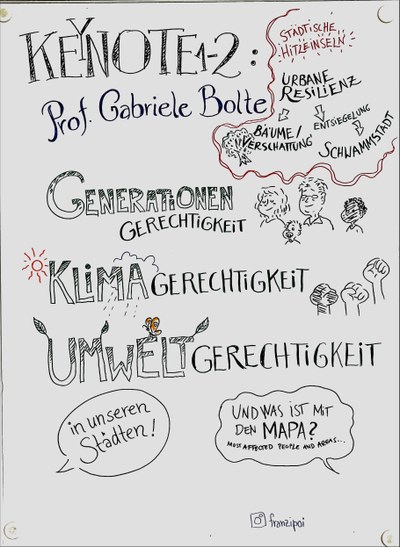 KEYNOTE 1-2:
Prof. Gabriele Bolte
STÄDTISCHE
HITZEINSELN
URBANE
RESILIENZ
BÄUME/
VERSCHATTUNG
ENTSIEGELUNG
SCHWAMMSTADT
GENERATIONEN
GERECHTIGKEIT
KLIMAGERECHTIGKEIT
UMWELTGERECHTIGKEIT
in unseren
Städten!
UND WAS IST MIT
DEN MAPA?
MOST AFFECTED PEOPLE AND AREAS...
franzipai